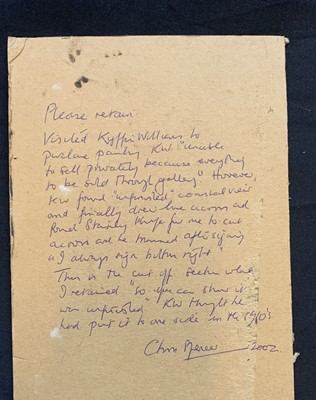 Please retain
Visited Kyffin Williams to
purchase painting KW "unable
to sell privately because everything
to be sold through gallery" However,
KW found "unfinished" coastal view
and finally drew line across and
found Stanley Knife for me to cut
across and he trimmed after signing
"I always sign bottom right"
This is the cut off section which
I retained "so you can show it
was unfinished" KW thought he
had put it to one side in the 1980's
Chris 2002